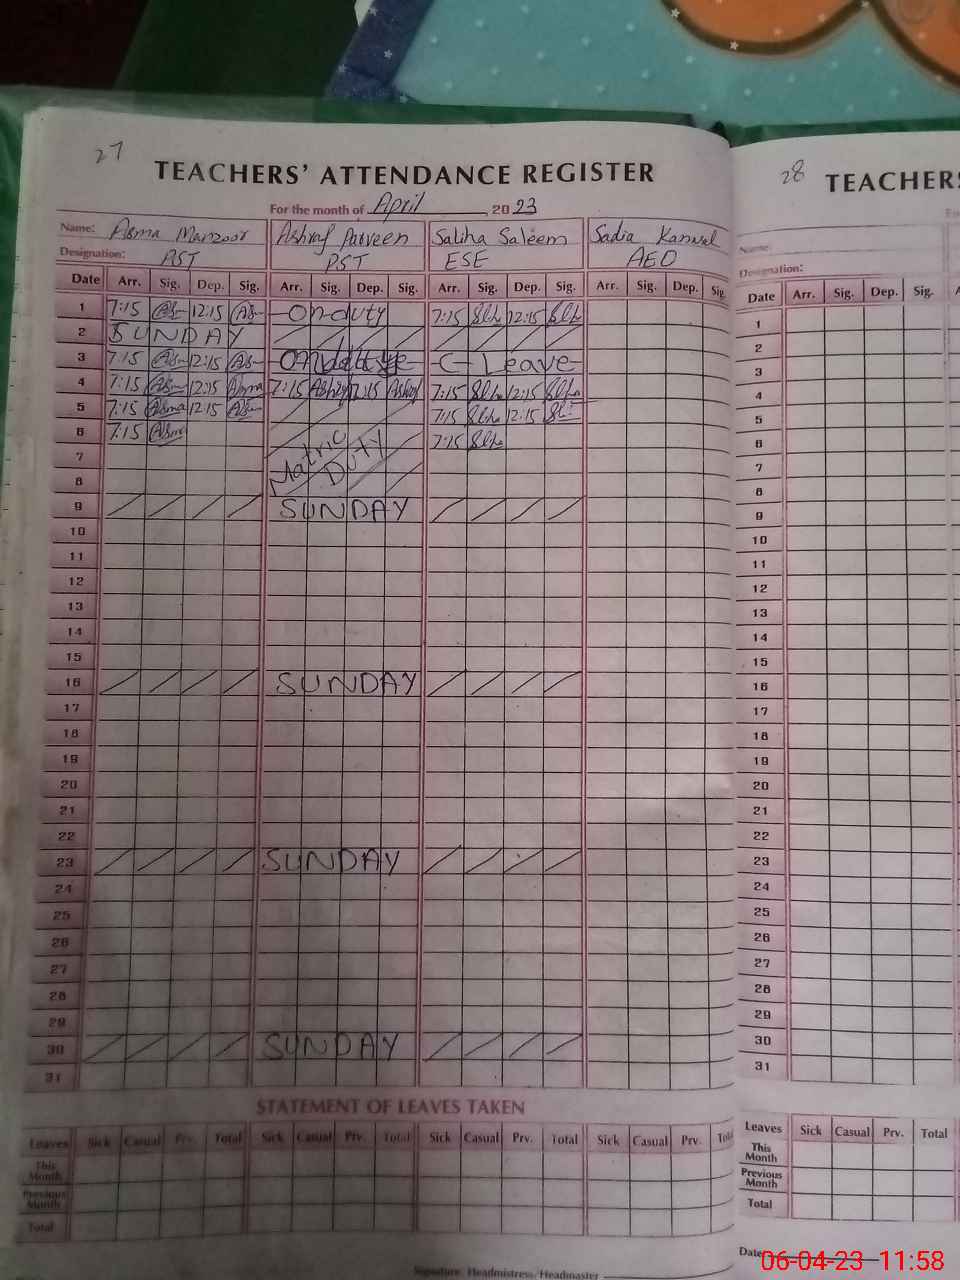 27
TEACHERS' ATTENDANCE REGISTER
For the month of April 2023
Name: Asma Manzoor Ashraf Parveen Saliha Saleem Sadia Kanwal
Designation: PST PST ESE AEO
Date Arr. Sig. Dep. Sig. Arr. Sig. Dep. Sig. Arr. Sig. Dep. Sig. Arr. Sig. Dep. Sig.
1 7:15 12:15 On duty 7:15 12:15
2 SUNDAY
3 7:15 12:15 C-Leave
4 7:15 12:15 Asma 7:15 Ashraf 12:15 Ashraf 7:15 12:15
5 7:15 Asma 12:15 7:15 12:15
6 7:15 Asma Matric 7:15
7 Duty
8
9 SUNDAY
10
11
12
13
14
15
16 SUNDAY
17
18
19
20
21
22
23 SUNDAY
24
25
26
27
28
29
30 SUNDAY
31
STATEMENT OF LEAVES TAKEN
Leaves Sick Casual Prv. Total Sick Casual Prv. Total Sick Casual Prv. Total Sick Casual Prv. Total
This Month
Previous Month
Total
Signature: Headmistress/Headmaster
28
TEACHERS
Name:
Designation:
Date Arr. Sig. Dep. Sig.
1
2
3
4
5
6
7
8
9
10
11
12
13
14
15
16
17
18
19
20
21
22
23
24
25
26
27
28
29
30
31
Leaves Sick Casual Prv. Total
This Month
Previous Month
Total
Date
06-04-23 11:58